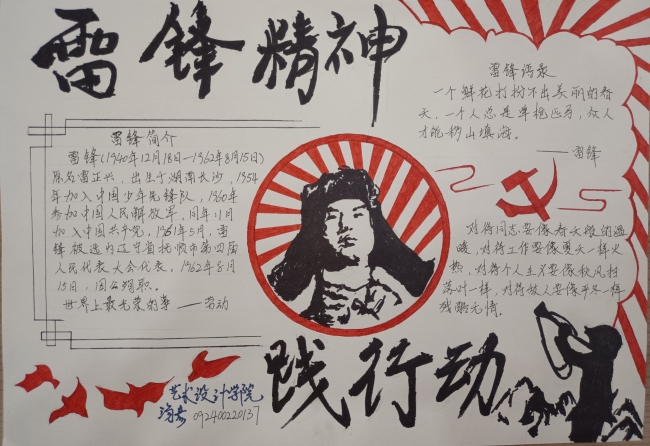 雷锋精神
雷锋简介
雷锋(1940年12月18日—1962年8月15日)
原名雷正兴，出生于湖南长沙，1954
年加入中国少年先锋队，1960年
参加中国人民解放军，同年11月
加入中国共产党，1961年5月，雷
锋被选为辽宁省抚顺市第四届
人民代表大会代表，1962年8月
15日，因公殉职。
世界上最光荣的事——劳动
雷锋语录
一个鲜花打扮不出美丽的春
天，一个人总是单枪匹马，众人
才能移山填海。
——雷锋
对待同志要像春天般的温
暖，对待工作要像夏天一样火
热，对待个人主义要像秋风扫
落叶一样，对待敌人要像严冬一样
残酷无情。
践行动
艺术设计学院
092400220137